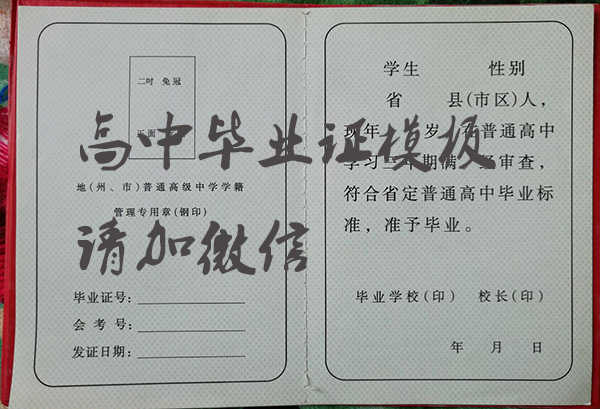 二吋 免冠
正面
地(州、市)普通高级中学学籍
管理专用章(钢印)
毕业证号:
会考号:
发证日期:
学生 性别
省 县(市区)人，
现年 岁，在普通高中
学习三年期满，经审查，
符合省定普通高中毕业标
准，准予毕业。
毕业学校(印) 校长(印)
年 月 日
高中毕业证模板
请加微信